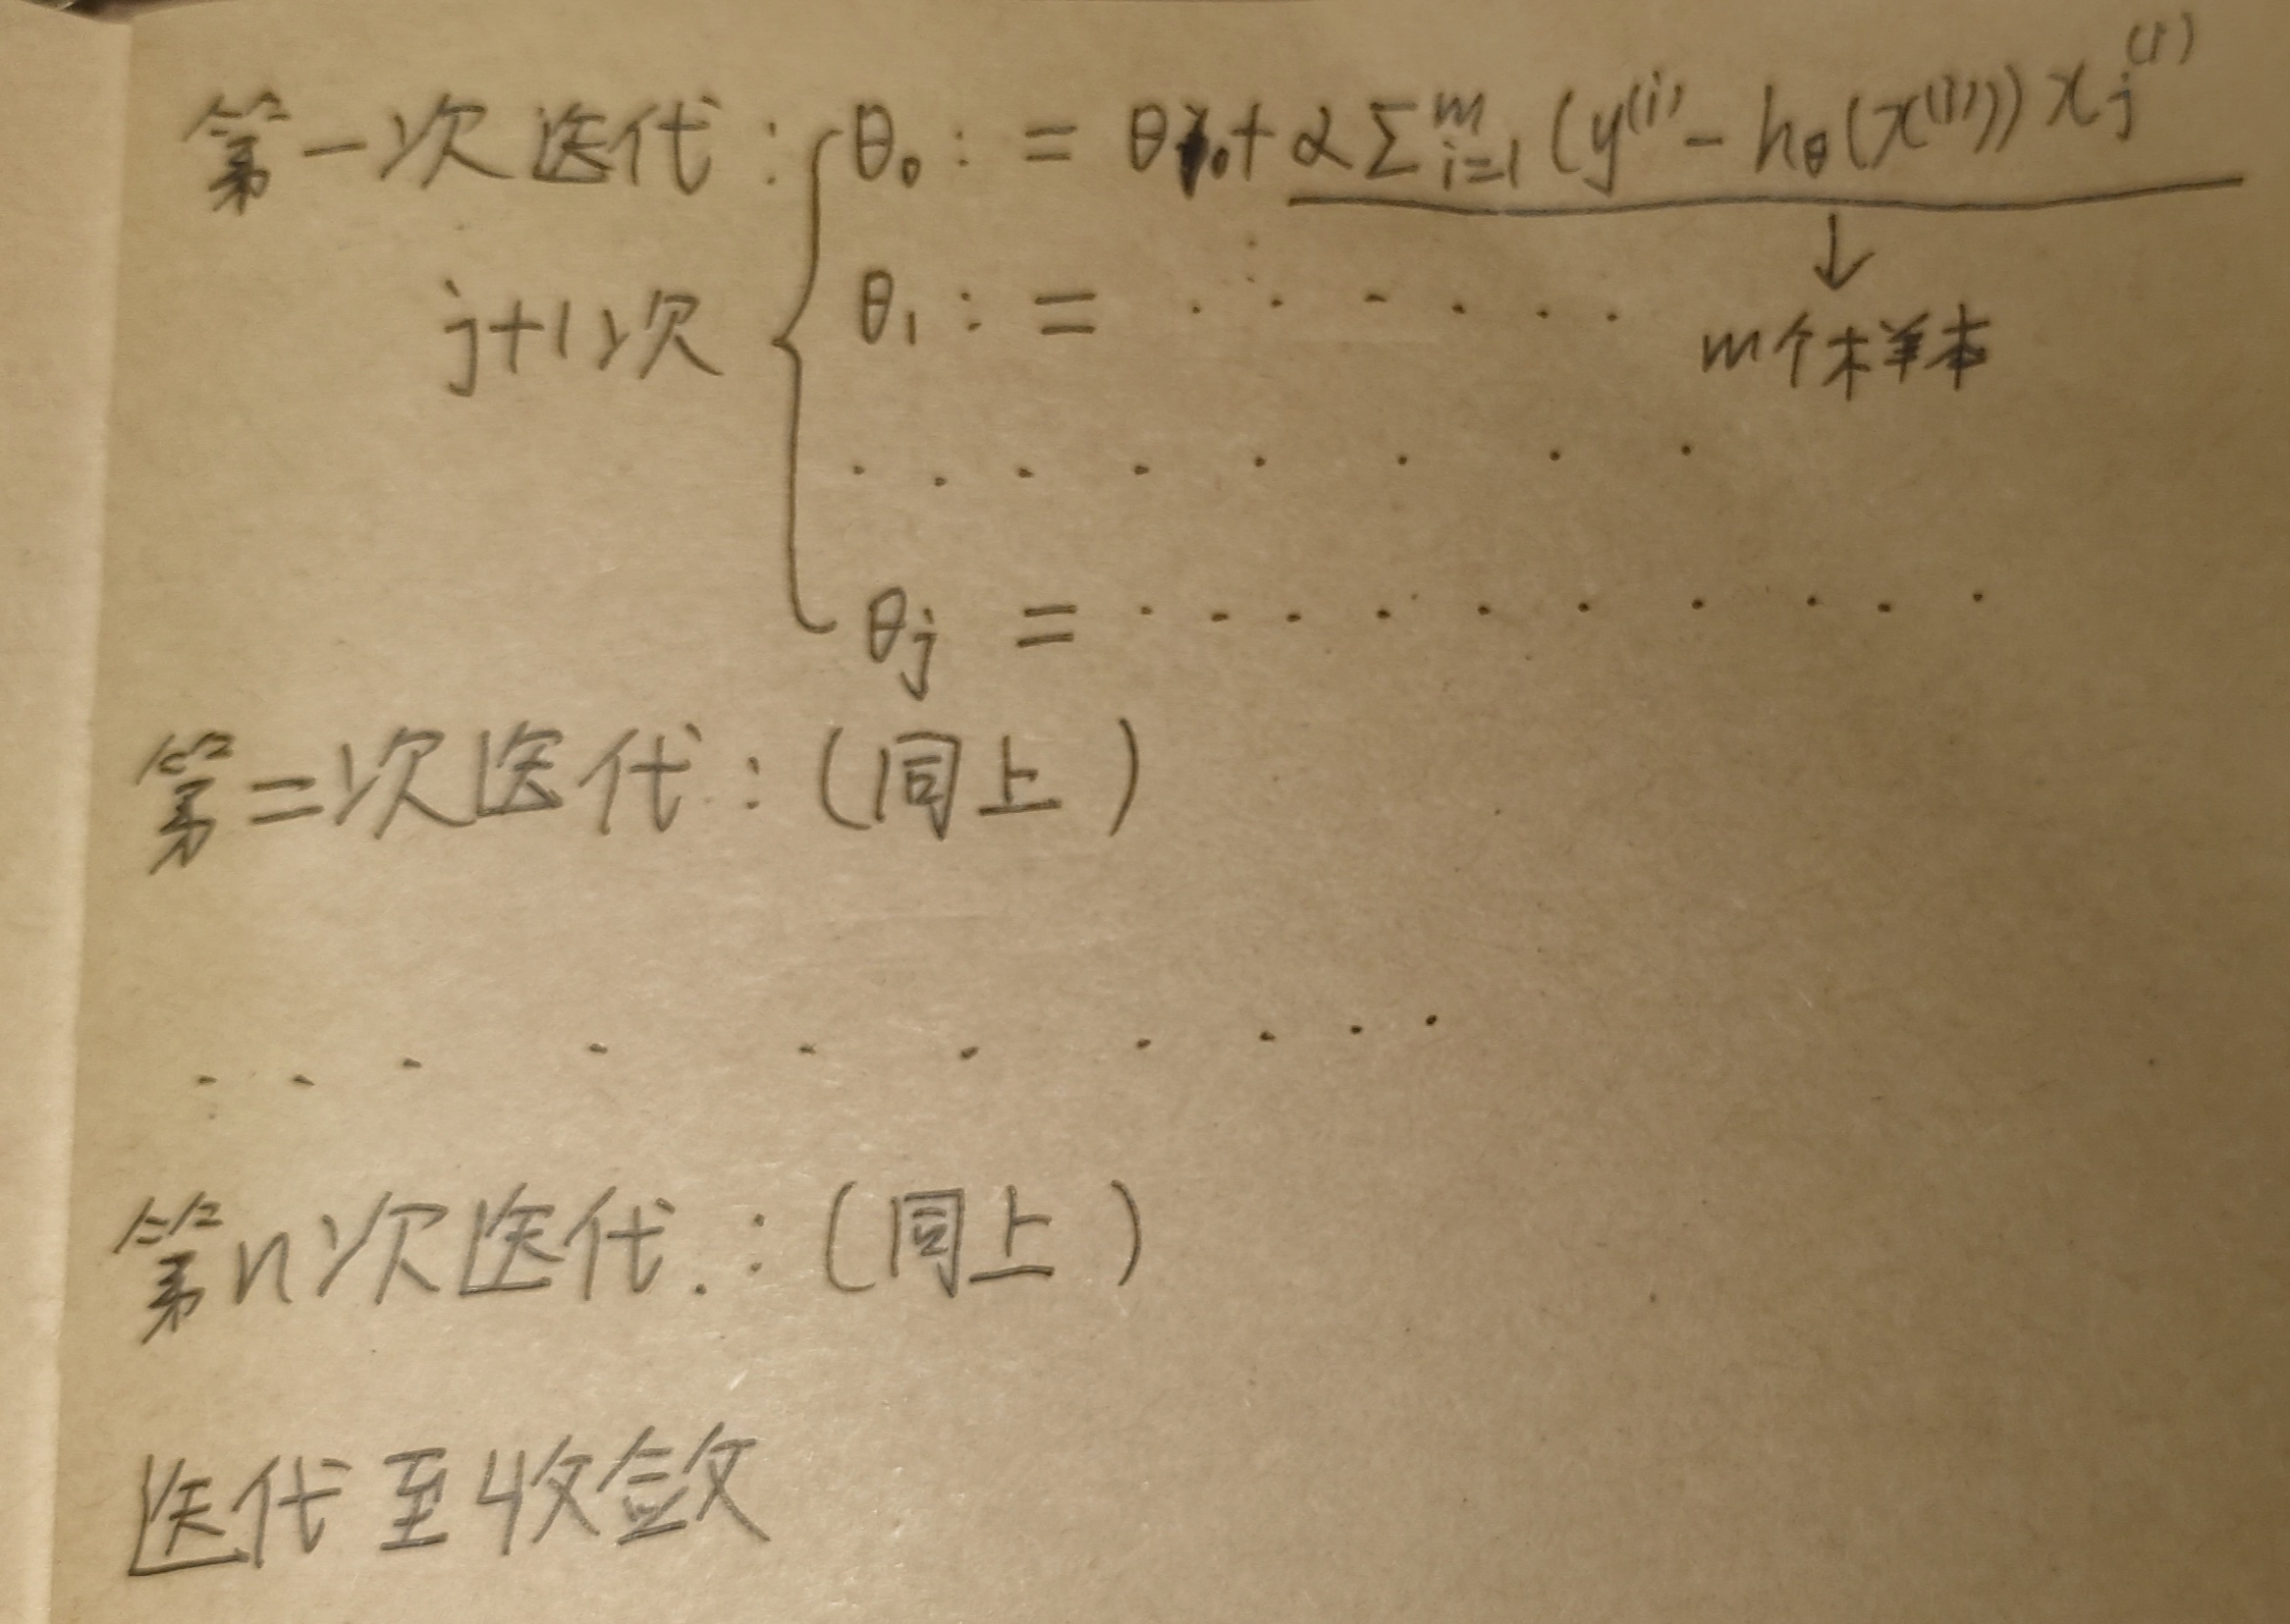 第一次迭代: θ₀ := θ₀ + α∑ᵢ₌₁ᵐ (y⁽ⁱ⁾ - hθ(x⁽ⁱ⁾)) xⱼ⁽ⁱ⁾
j+1次 θ₁ := · · · · · · ↓
m个样本
· · · · · · · ·
θj = · · · · · · · · · · ·
第二次迭代: (同上)
· · · · · · · · · ·
第n次迭代.: (同上)
迭代至收敛